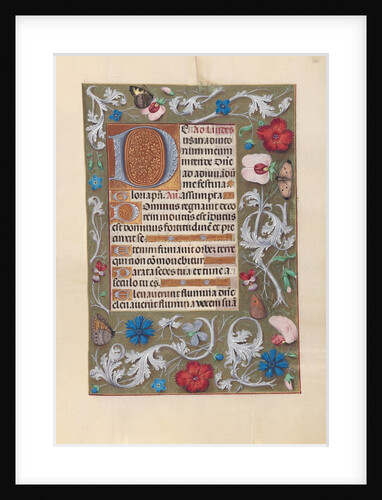 D E Ad laudes
us in adiuto
rium meum
intende Dñe
ad adiuuādū
me festina
Gloria pr̄i. Añ assumpta
Dominus regnauit deco
rem indutus est indutus
est dominus fortitudinem et pre
cinxit se
Etenim firmauit orbem terre
qui non commouebitur.
Parata sedes tua ex tunc a
seculo tu es.
Eleuauerunt flumina dñe
eleuauerunt flumina vocem suā